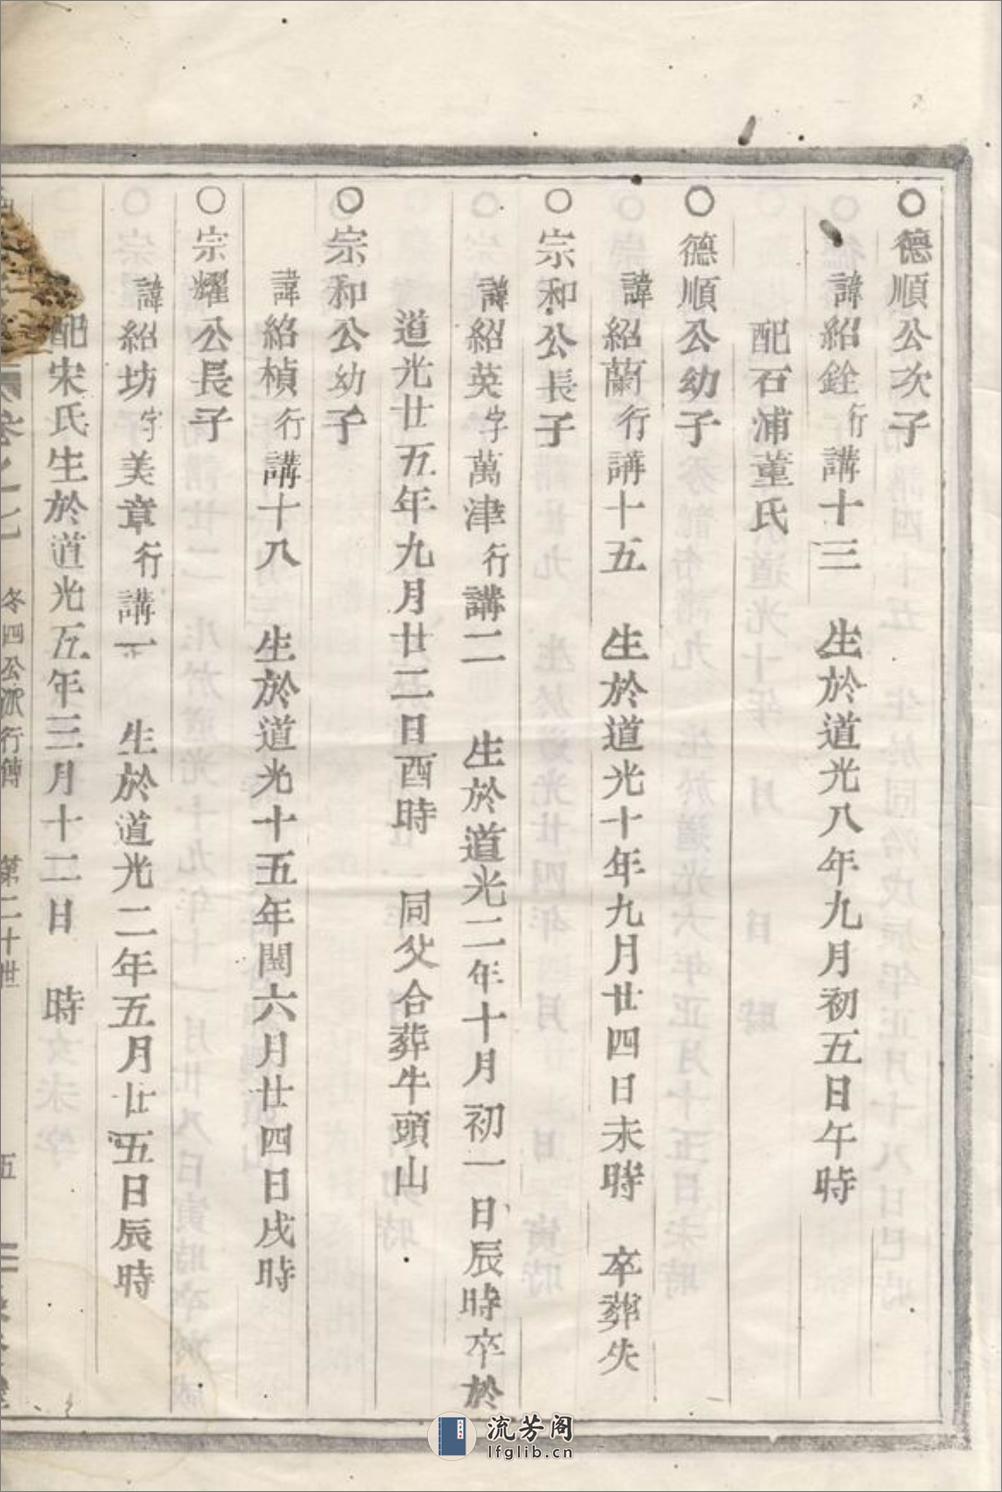 ○德順公次子
諱紹銓行講十三 生於道光八年九月初五日午時
配石浦董氏
○德順公幼子
諱紹蘭行講十五 生於道光十年九月廿四日未時 卒葬失
○宗和公長子
諱紹英字萬津行講二 生於道光二年十月初一日辰時卒於
道光廿五年九月廿二日酉時 同父合葬牛頭山
○宗和公幼子
諱紹楨行講十八 生於道光十五年閏六月廿四日戌時
○宗耀公長子
諱紹坊字美章行講一 生於道光二年五月廿五日辰時
配宋氏生於道光五年三月十二日 時
卷之七 冬四公派行傳 第二十世 五
流芳阁
lfglib.cn